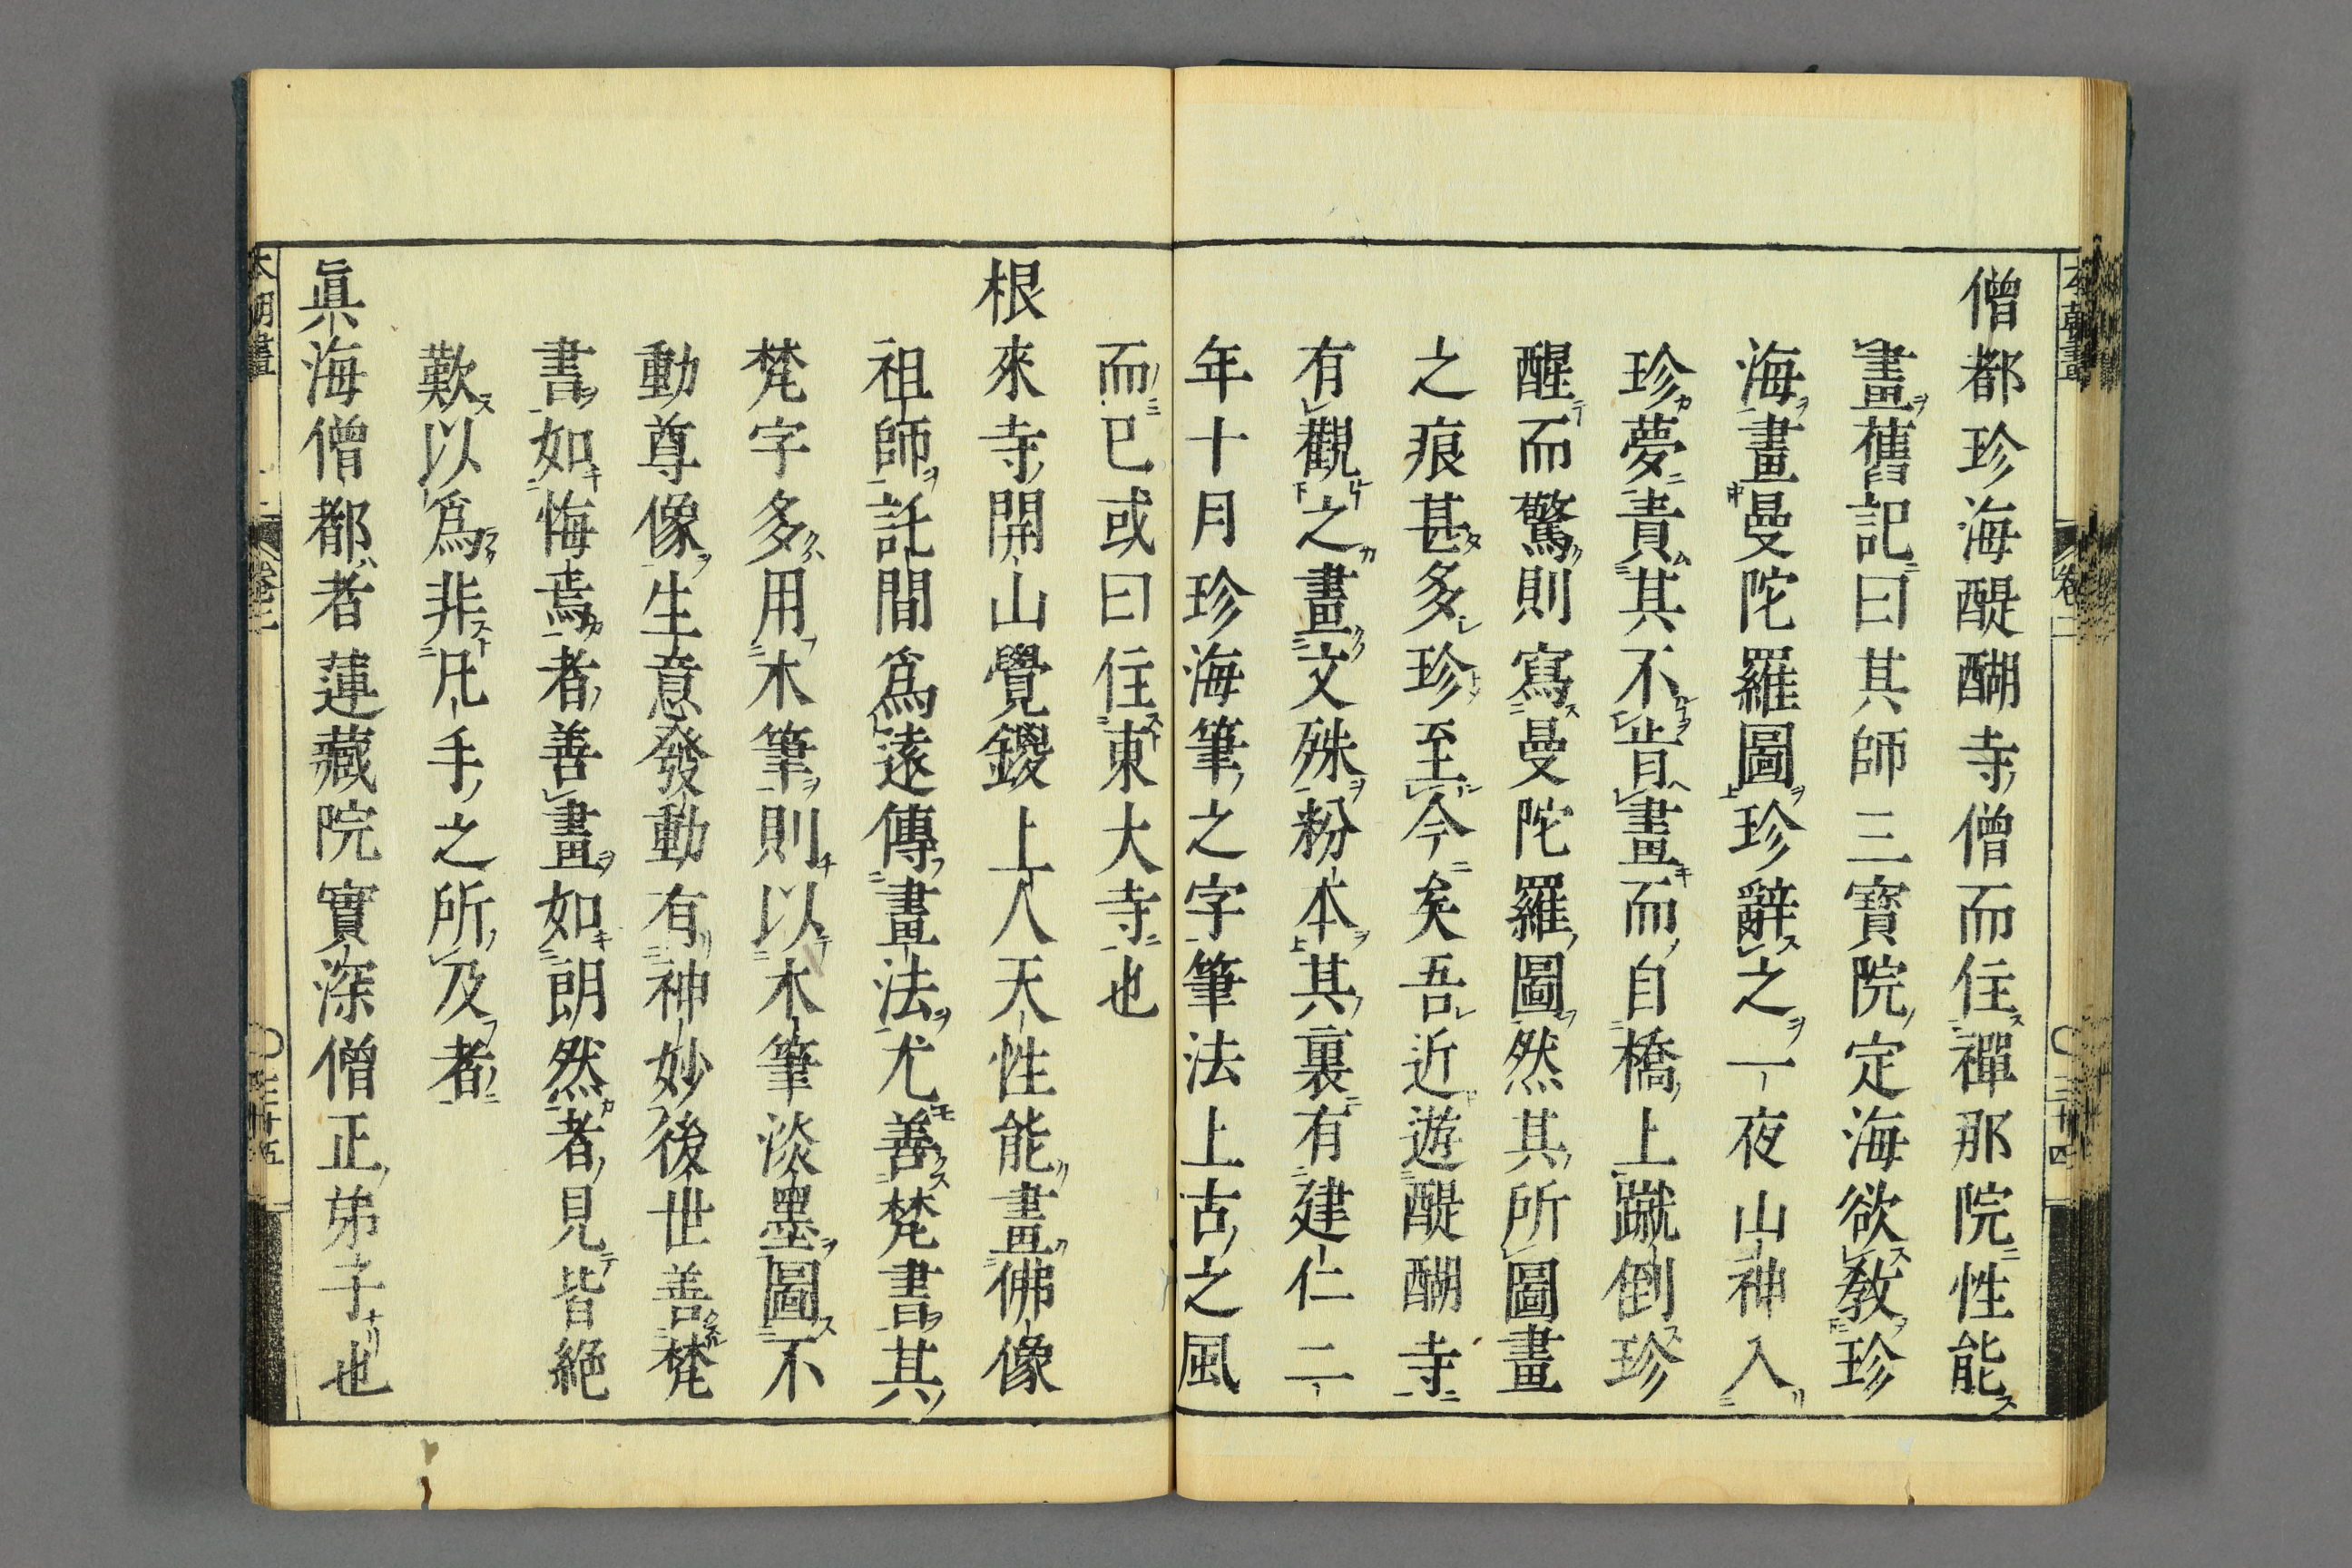 僧都珍海醍醐寺僧而住禪那院性能
畫舊記曰其師三寶院定海欲教珍
海畫曼陀羅圖珍辭之一夜山神入
珍夢責其不肯畫而自橋上蹴倒珍
醒而驚則寫曼陀羅圖然其所圖畫
之痕甚多珍至今矣吾近遊醍醐寺
有觀之畫文殊粉本其裏有建仁二
年十月珍海筆之字筆法上古之風
而已或曰住東大寺也
根來寺開山覺鑁上人天性能畫佛像
祖師託間爲遠傳畫法尤善梵書其
梵字多用木筆則以木筆淡墨圖不
動尊像生意發動有神妙後世善梵
書如悔焉者善畫如朗然者見皆絕
歎以爲非凡手之所及者
眞海僧都者蓮藏院實深僧正弟子也